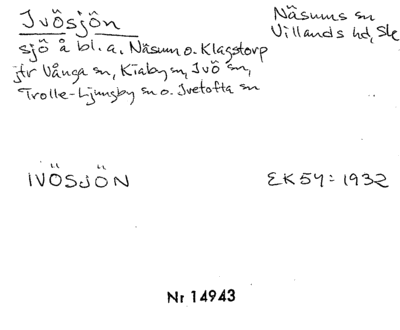 Ivösjön
Näsums sn
Villands hd, Sk
sjö å bl. a. Näsum o. Klagstorp
jfr Vånga sn, Kiaby sn, Ivö sn,
Trolle-Ljungby sn o. Ivetofta sn
IVÖSJÖN
EK 54: 1932
Nr 14943